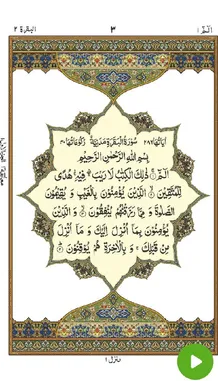 البقرة ٢
٣
الٓمّٓ ١
اٰیَاتُهَا ٢٨٦ سُوْرَةُ الْبَقَرَةِ مَدَنِیَّةٌ رُكُوْعَاتُهَا ٤٠
بِسْمِ اللّٰهِ الرَّحْمٰنِ الرَّحِیْمِ
الٓمّٓ ۚ ذٰلِكَ الْكِتٰبُ لَا رَیْبَ ۛۚ فِیْهِ ۛۚ هُدًی
لِّلْمُتَّقِیْنَ ۙ الَّذِیْنَ یُؤْمِنُوْنَ بِالْغَیْبِ وَ یُقِیْمُوْنَ
الصَّلٰوةَ وَ مِمَّا رَزَقْنٰهُمْ یُنْفِقُوْنَ ۙ وَ الَّذِیْنَ
یُؤْمِنُوْنَ بِمَاۤ اُنْزِلَ اِلَیْكَ وَ مَاۤ اُنْزِلَ
مِنْ قَبْلِكَ ۚ وَ بِالْاٰخِرَةِ هُمْ یُوْقِنُوْنَ ؕ
منزل ١